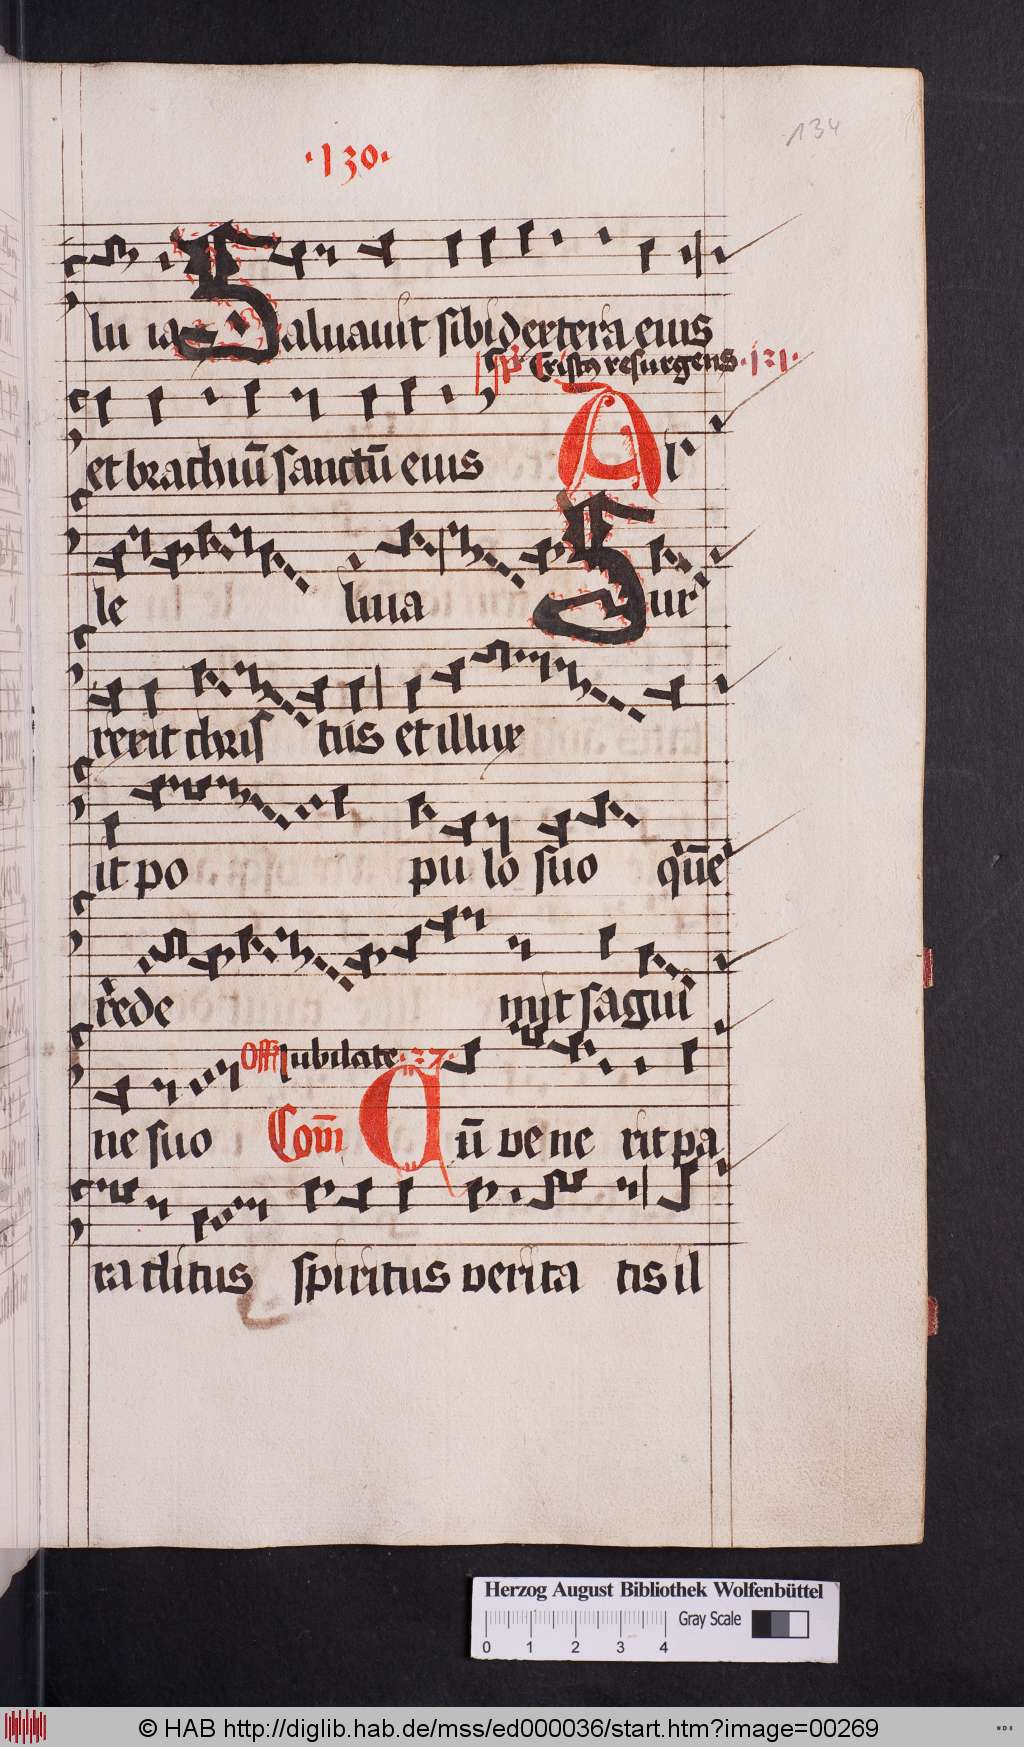 134
·130·
lu ia Saluauit sibi dextera eius
Cristꝰ resurgens ·131·
et brachiū sanctū eius Al
le luia Sur
rexit chris tus et illux
it po pu lo suo quē
rede mit sagui
Off Iubilate ·27·
ne suo Com̄ Cū ve ne rit pa
ra clitus spiritus verita tis il
Herzog August Bibliothek Wolfenbüttel
Gray Scale
0 1 2 3 4
© HAB http://diglib.hab.de/mss/ed000036/start.htm?image=00269